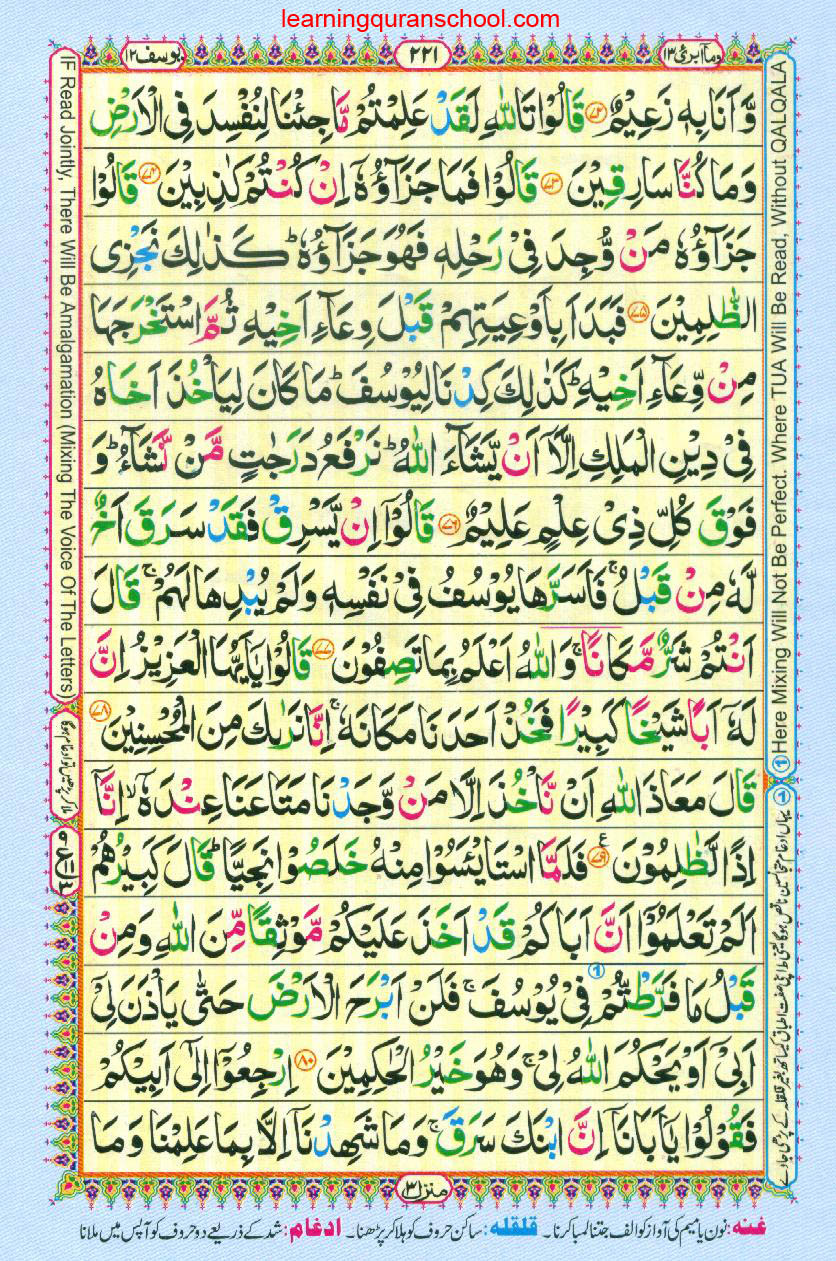 learningquranschool.com
وماابرئ ١٣
٢٢١
يوسف ١٢
وَّ اَنَا بِهٖ زَعِيْمٌ ﴿٧٢﴾ قَالُوْا تَاللّٰهِ لَقَدْ عَلِمْتُمْ مَّا جِئْنَا لِنُفْسِدَ فِى الْاَرْضِ
وَمَا كُنَّا سَارِقِيْنَ ﴿٧٣﴾ قَالُوْا فَمَا جَزَآؤُهٗۤ اِنْ كُنْتُمْ كٰذِبِيْنَ ﴿٧٤﴾ قَالُوْا
جَزَآؤُهٗ مَنْ وُّجِدَ فِىْ رَحْلِهٖ فَهُوَ جَزَآؤُهٗ ؕ كَذٰلِكَ نَجْزِى
الظّٰلِمِيْنَ ﴿٧٥﴾ فَبَدَاَ بِاَوْعِيَتِهِمْ قَبْلَ وِعَآءِ اَخِيْهِ ثُمَّ اسْتَخْرَجَهَا
مِنْ وِّعَآءِ اَخِيْهِ ؕ كَذٰلِكَ كِدْنَا لِيُوْسُفَ ؕ مَا كَانَ لِيَاْخُذَ اَخَاهُ
فِىْ دِيْنِ الْمَلِكِ اِلَّاۤ اَنْ يَّشَآءَ اللّٰهُ ؕ نَرْفَعُ دَرَجٰتٍ مَّنْ نَّشَآءُ ؕ وَ
فَوْقَ كُلِّ ذِىْ عِلْمٍ عَلِيْمٌ ﴿٧٦﴾ قَالُوْۤا اِنْ يَّسْرِقْ فَقَدْ سَرَقَ اَخٌ
لَّهٗ مِنْ قَبْلُ ۚ فَاَسَرَّهَا يُوْسُفُ فِىْ نَفْسِهٖ وَلَمْ يُبْدِهَا لَهُمْ ۚ قَالَ
اَنْتُمْ شَرٌّ مَّكَانًا ۚ وَ اللّٰهُ اَعْلَمُ بِمَا تَصِفُوْنَ ﴿٧٧﴾ قَالُوْا يٰۤاَيُّهَا الْعَزِيْزُ اِنَّ
لَهٗۤ اَبًا شَيْخًا كَبِيْرًا فَخُذْ اَحَدَنَا مَكَانَهٗ ۚ اِنَّا نَرٰىكَ مِنَ الْمُحْسِنِيْنَ ﴿٧٨﴾
قَالَ مَعَاذَ اللّٰهِ اَنْ نَّاْخُذَ اِلَّا مَنْ وَّجَدْنَا مَتَاعَنَا عِنْدَهٗۤ ۙ اِنَّاۤ
اِذًا لَّظٰلِمُوْنَ ﴿٧٩﴾ ع فَلَمَّا اسْتَايْـَٔسُوْا مِنْهُ خَلَصُوْا نَجِيًّا ؕ قَالَ كَبِيْرُهُمْ
اَلَمْ تَعْلَمُوْۤا اَنَّ اَبَاكُمْ قَدْ اَخَذَ عَلَيْكُمْ مَّوْثِقًا مِّنَ اللّٰهِ وَ مِنْ
قَبْلُ مَا فَرَّطْتُّمْ ① فِىْ يُوْسُفَ ۚ فَلَنْ اَبْرَحَ الْاَرْضَ حَتّٰى يَاْذَنَ لِىْۤ
اَبِىْۤ اَوْ يَحْكُمَ اللّٰهُ لِىْ ۚ وَهُوَ خَيْرُ الْحٰكِمِيْنَ ﴿٨٠﴾ اِرْجِعُوْۤا اِلٰٓى اَبِيْكُمْ
فَقُوْلُوْا يٰۤاَبَانَاۤ اِنَّ ابْنَكَ سَرَقَ ۚ وَمَا شَهِدْنَاۤ اِلَّا بِمَا عَلِمْنَا وَمَا
منزل ٣
غنه: نون یا میم کی آواز کو الف جتنا لمبا کرنا۔ قلقله: ساکن حروف کو ہلا کر پڑھنا۔ ادغام: شد کے ذریعے دو حروف کو آپس میں ملانا
IF Read Jointly, There Will Be Amalgamation (Mixing The Voice Of The Letters)
ملا کر پڑھیں تو ادغام ہوگا
① Here Mixing Will Not Be Perfect. Where TUA Will Be Read, Without QALQALA